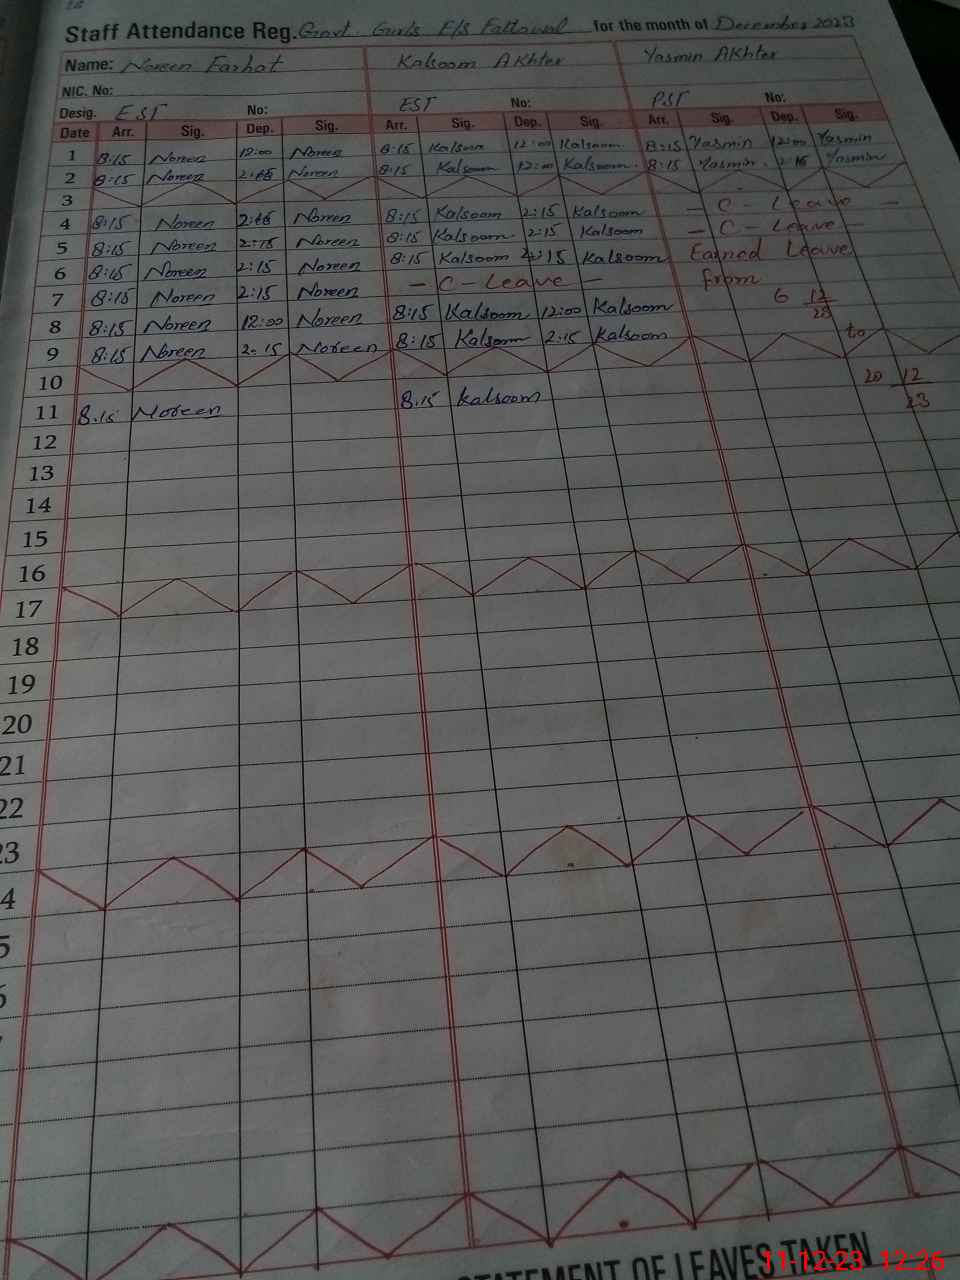 Staff Attendance Reg. Govt. Girls E/S Fattowal for the month of December 2023
Name: Noreen Farhat Kalsoom AKhter Yasmin AKhter
NIC. No:
Desig. EST No: EST No: PST No:
Date Arr. Sig. Dep. Sig. Arr. Sig. Dep. Sig. Arr. Sig. Dep. Sig.
1 8:15 Noreen 12:00 Noreen 8:15 Kalsoom 12:00 Kalsoom 8:15 Yasmin 12:00 Yasmin
2 8:15 Noreen Noreen 8:15 Kalsoom 12:00 Kalsoom. 8:15 Yasmin. 2:15 Yasmin
3
4 8:15 Noreen 2:15 Noreen 8:15 Kalsoom 2:15 Kalsoom - C - Leave -
5 8:15 Noreen 2:15 Noreen 8:15 Kalsoom 2:15 Kalsoom - C - Leave -
6 8:15 Noreen 2:15 Noreen 8:15 Kalsoom 2:15 Kalsoom Earned Leave
7 8:15 Noreen 2:15 Noreen - C - Leave - from
8 8:15 Noreen 12:00 Noreen 8:15 Kalsoom 12:00 Kalsoom 6 12/23
9 8:15 Noreen 2:15 Noreen 8:15 Kalsoom 2:15 Kalsoom to
10 20 12/23
11 8.15 Noreen 8.15 kalsoom
12
13
14
15
16
17
18
19
20
21
22
23
4
5
6
STATEMENT OF LEAVES TAKEN
11-12-23 12:26